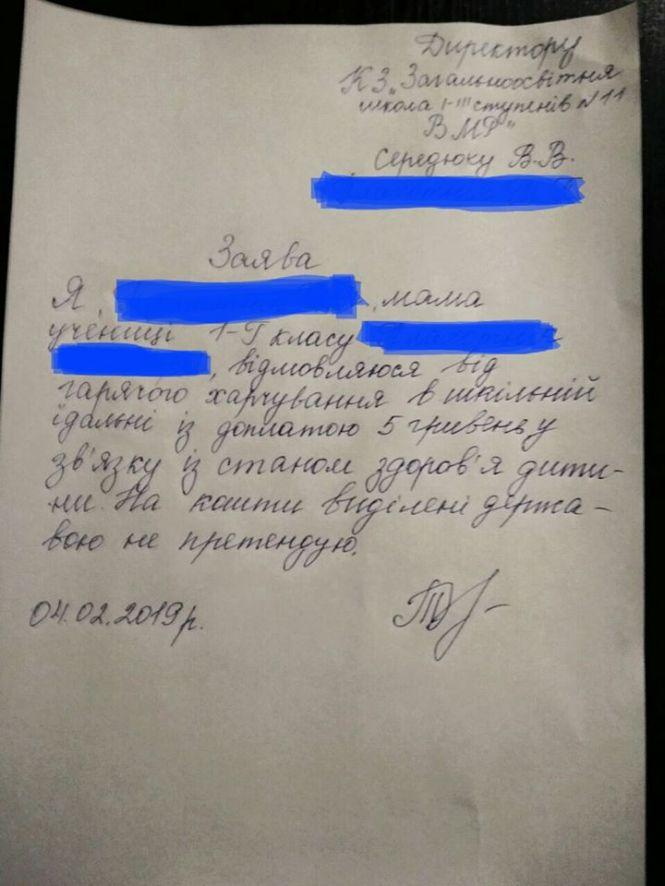 Директору
КЗ „Загальноосвітня
школа І-ІІІ ступенів №11
ВМР"
Середюку В.В.
Заява
Я, , мама
учениці 1-Г класу
, відмовляюся від
гарячого харчування в шкільній
їдальні із доплатою 5 гривень у
зв'язку із станом здоров'я дити-
ни. На кошти виділені держа-
вою не претендую.
04.02.2019р.